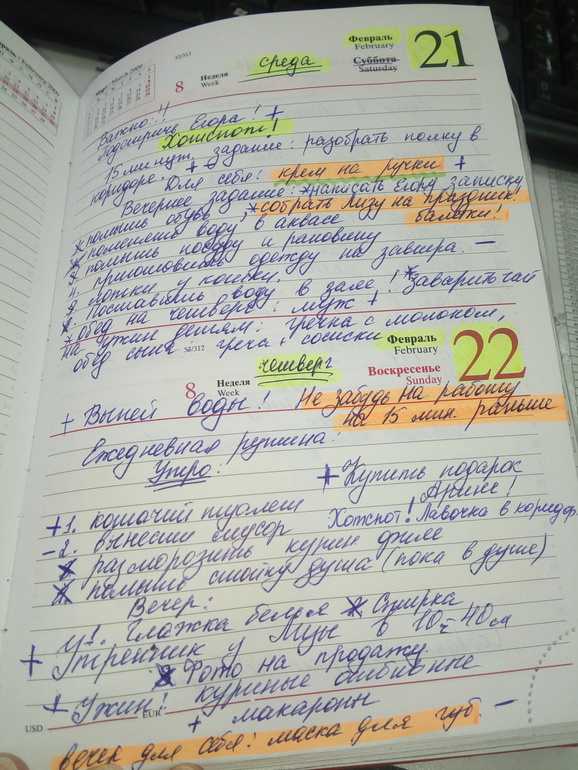 Февраль / February 2009
Март / March 2009
52/313
8 Неделя
Week
среда
Февраль
February
Суббота
Saturday
21
Важно!!
Подстричь Егора! +
Хотспот!
15 минут. задание: разобрать полку в
коридоре. +
Для себя: крем на ручки +
Вечернее задание: *написать Егору записку
* помыть обувь, *собрать Лизу на праздник!
* поменять воду в аквасе балетки!
помыть посуду и раковину
4. приготовить одежду на завтра. —
лотки у кошек.
Поставить воду в зале! *Заварить чай
+ обед на четверг: муж +
на ужин детям: гречка с молоком,
обед сыну: греча + сосиски
53/312
8 Неделя
Week
четверг
Февраль
February
Воскресенье
Sunday
22
+ Выпей воды! Не забудь на работу
на 15 мин. раньше
Ежедневная рутина:
Утро:
+ Купить подарок
Арише!
+ 1. кошачий туалет
Хотспот! Лавочка в коридор.
– 2. вынести мусор
разморозить курин филе
помыть стойку душа (пока в душе)
Вечер:
У!. Глажка белая * Стирка
+ Утренник у Лизы в 10–40м
Фото на продажу.
+ Ужин! куриные отбивные
+ макароны
USD
EUR
вечер для себя: маска для губ. —